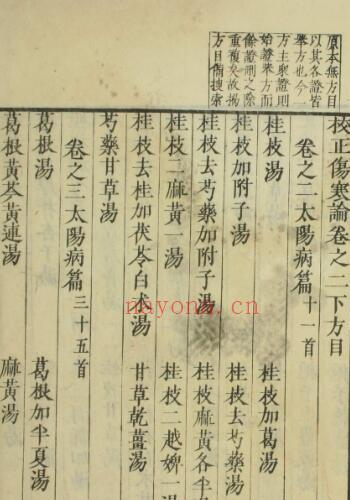 原本無方目
以其各證皆
舉方也今一
方主衆證則
始證舉方而
餘證刪之除
重複矣故揭
方目備搜索
校正傷寒論卷之二下方目
卷之二太陽病篇十一首
桂枝湯 桂枝加葛湯
桂枝加附子湯 桂枝去芍藥湯
桂枝去芍藥加附子湯 桂枝麻黃各半
桂枝二麻黃一湯 桂枝二越婢一湯
桂枝去桂加茯苓白朮湯 甘草乾薑湯
芍藥甘草湯
卷之三太陽病篇三十五首
葛根湯 葛根加半夏湯
葛根黃芩黃連湯 麻黃湯
nayona.cn